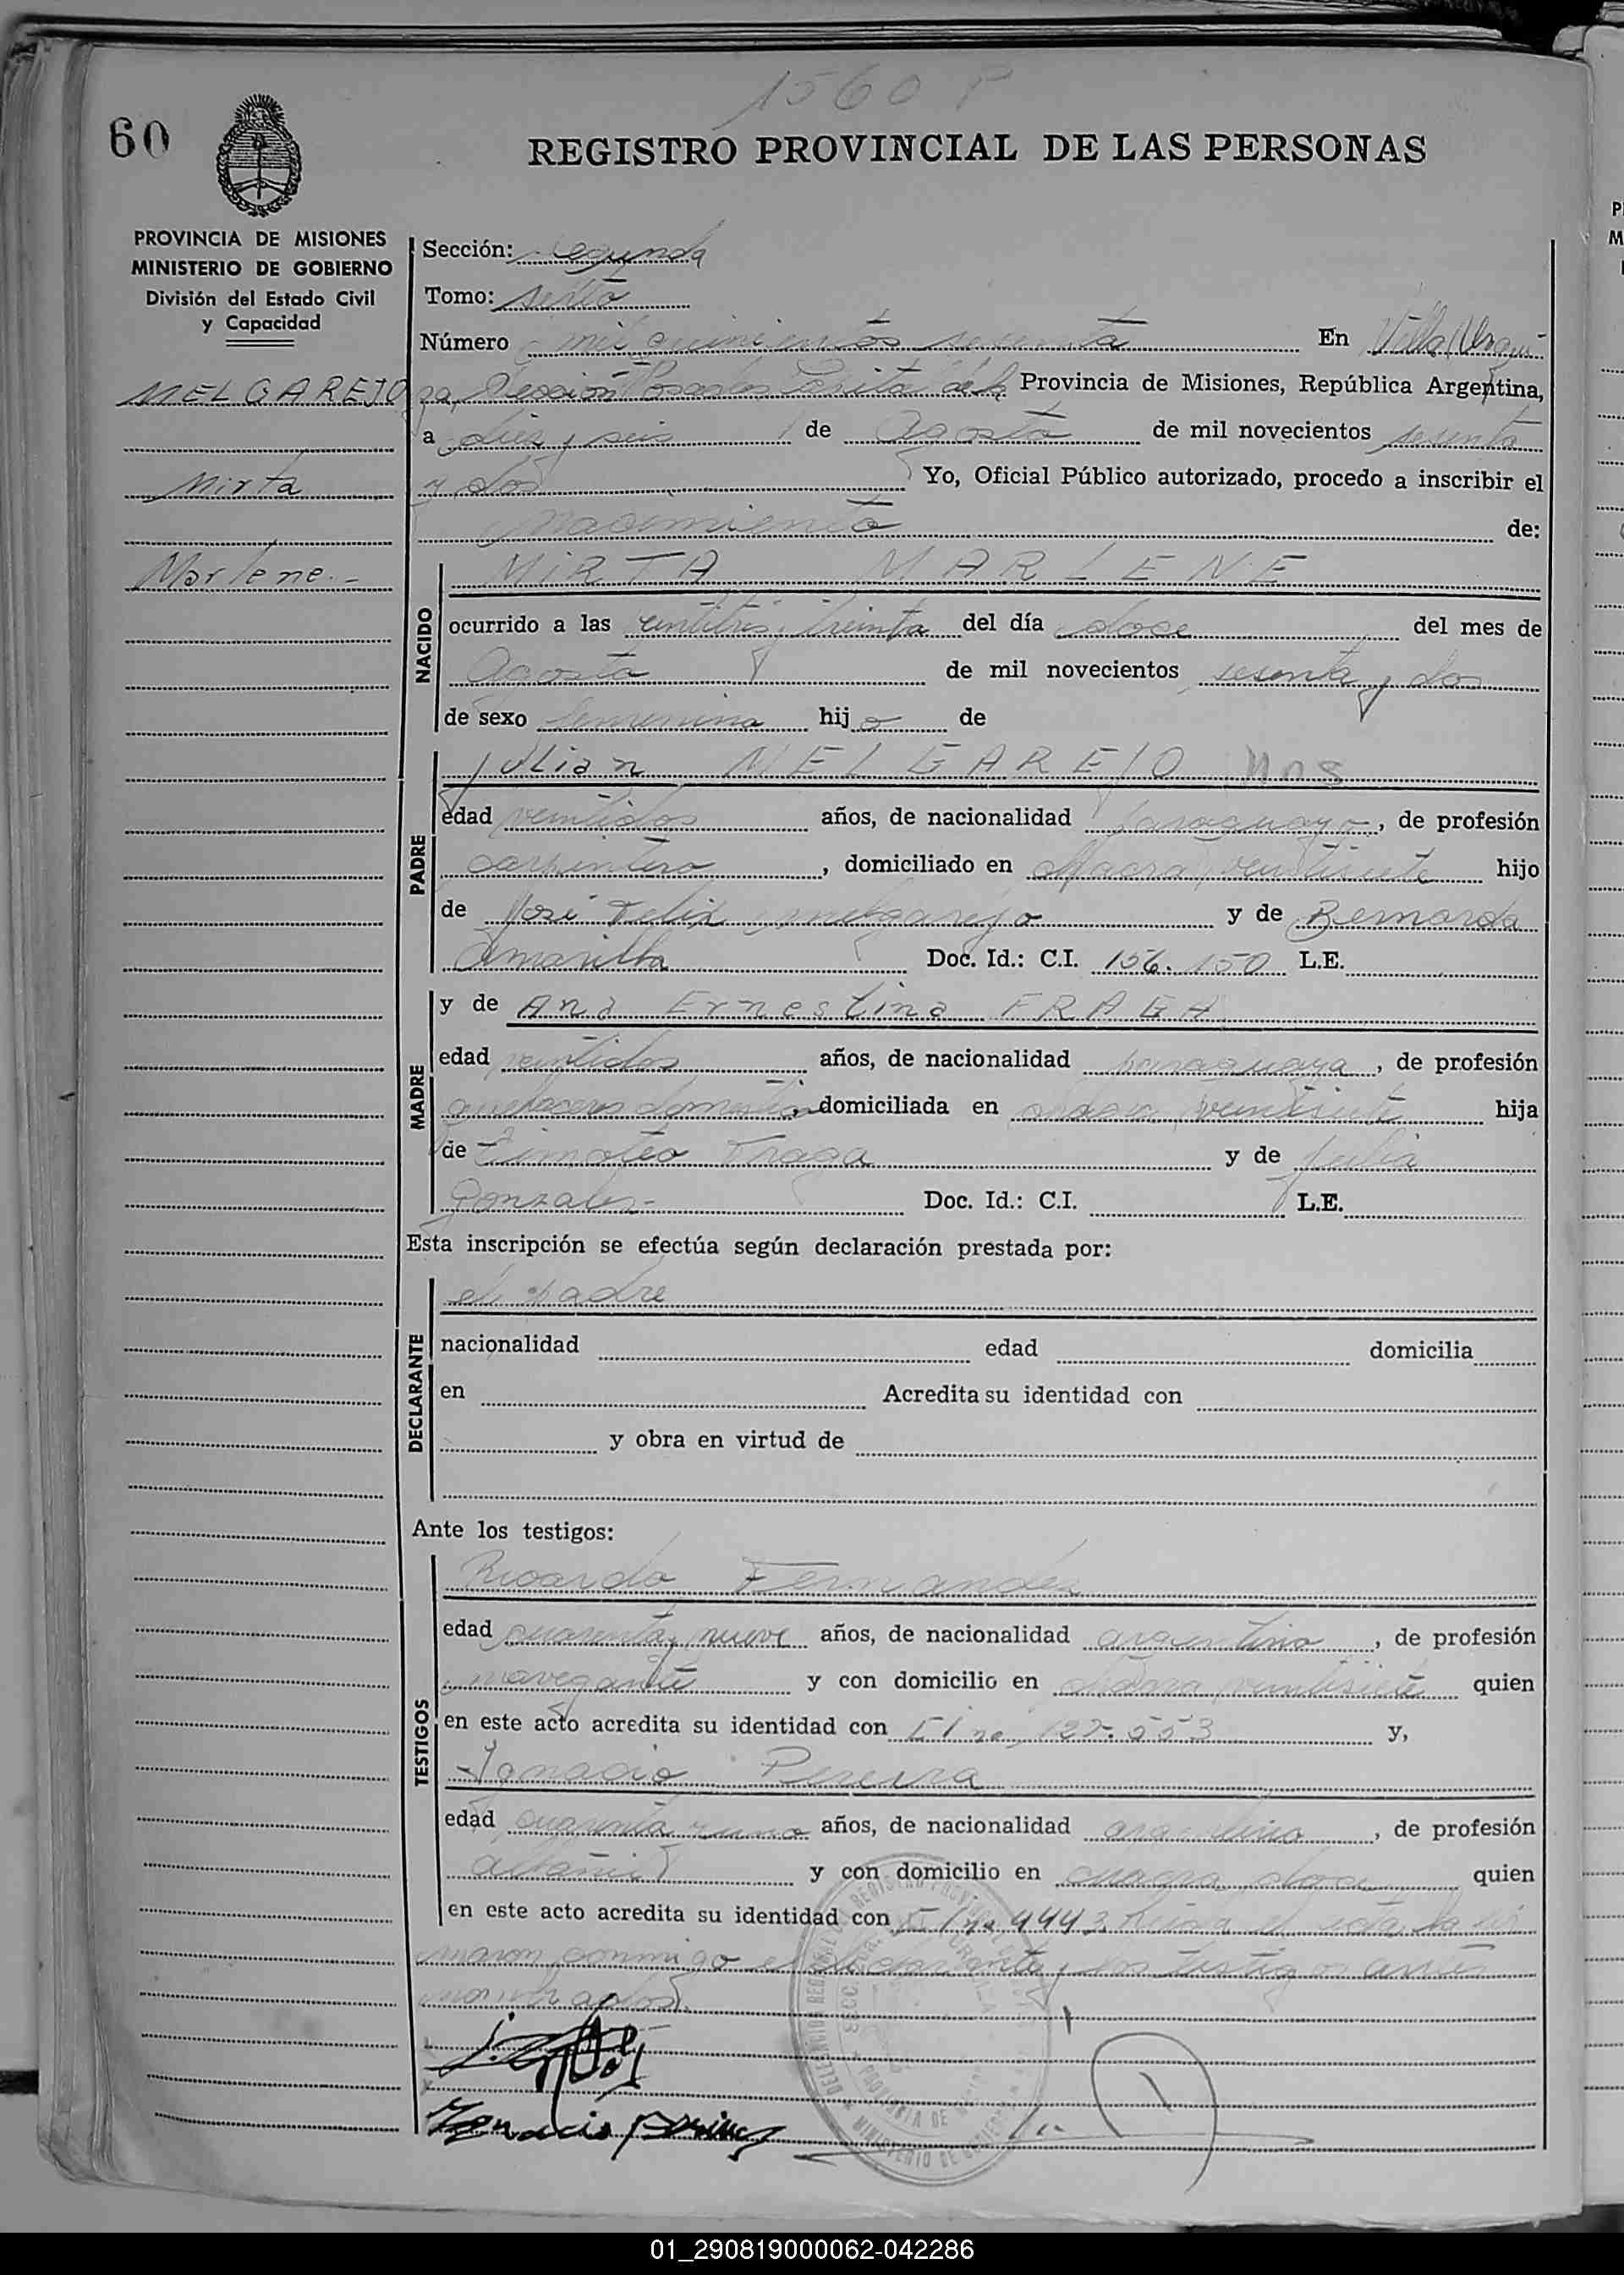 1560 P
60
REGISTRO PROVINCIAL DE LAS PERSONAS
PROVINCIA DE MISIONES
MINISTERIO DE GOBIERNO
División del Estado Civil
y Capacidad
MELGAREJO
Mirta
Marlene.-
Sección: Segunda
Tomo: sexto
Número mil quinientos sesenta En Villa Urqui
za, Sección Posadas Provincia de Misiones, República Argentina,
a dies y seis de Agosto de mil novecientos sesenta
y dos Yo, Oficial Público autorizado, procedo a inscribir el
Nacimiento de:
NACIDO
MIRTA MARLENE
ocurrido a las ventitrés y treinta del día doce del mes de
Agosto de mil novecientos sesenta y dos
de sexo femenino hija de
PADRE
Julian MELGAREJO
edad veintidos años, de nacionalidad paraguayo, de profesión
carpintero, domiciliado en chacra ventisiete hijo
de José Felix Melgarejo y de Bernarda
Amarilla Doc. Id.: C.I. 156.150 L.E.
MADRE
y de Ana Ernestina FRAGA
edad veintidos años, de nacionalidad paraguaya, de profesión
quehaceres domesticos, domiciliada en chacra ventisiete hija
de Timoteo Fraga y de Julia
Gonzales- Doc. Id.: C.I. L.E.
Esta inscripción se efectúa según declaración prestada por:
DECLARANTE
el padre
nacionalidad edad domicilia
en Acredita su identidad con
y obra en virtud de
Ante los testigos:
TESTIGOS
Ricardo Fernandez
edad cuarenta y nueve años, de nacionalidad argentino, de profesión
navegante y con domicilio en chacra ventisiete quien
en este acto acredita su identidad con y,
Ignacio Pereira
edad cuarenta y uno años, de nacionalidad argentino, de profesión
albañil y con domicilio en chacra doce quien
en este acto acredita su identidad con
maron conmigo el declarante y los testigos antes
nombrados.
01_290819000062-042286